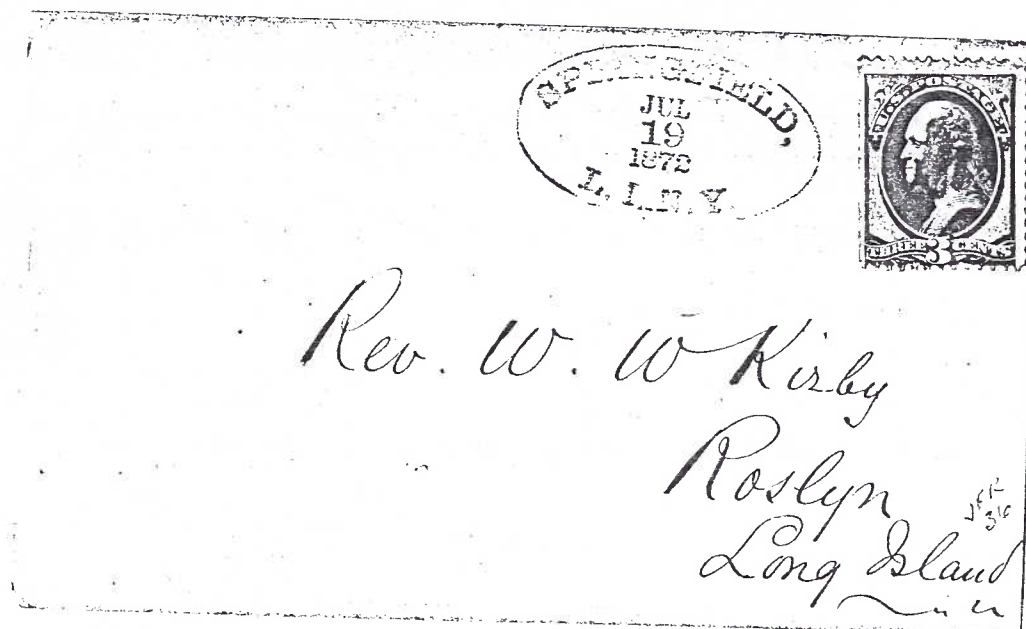 SPRINGFIELD,
JUL
19
1872
L. I. N. Y.
U.S. POSTAGE
THREE 3 CENTS
Rev. W. W Kirby
Roslyn
Long Island